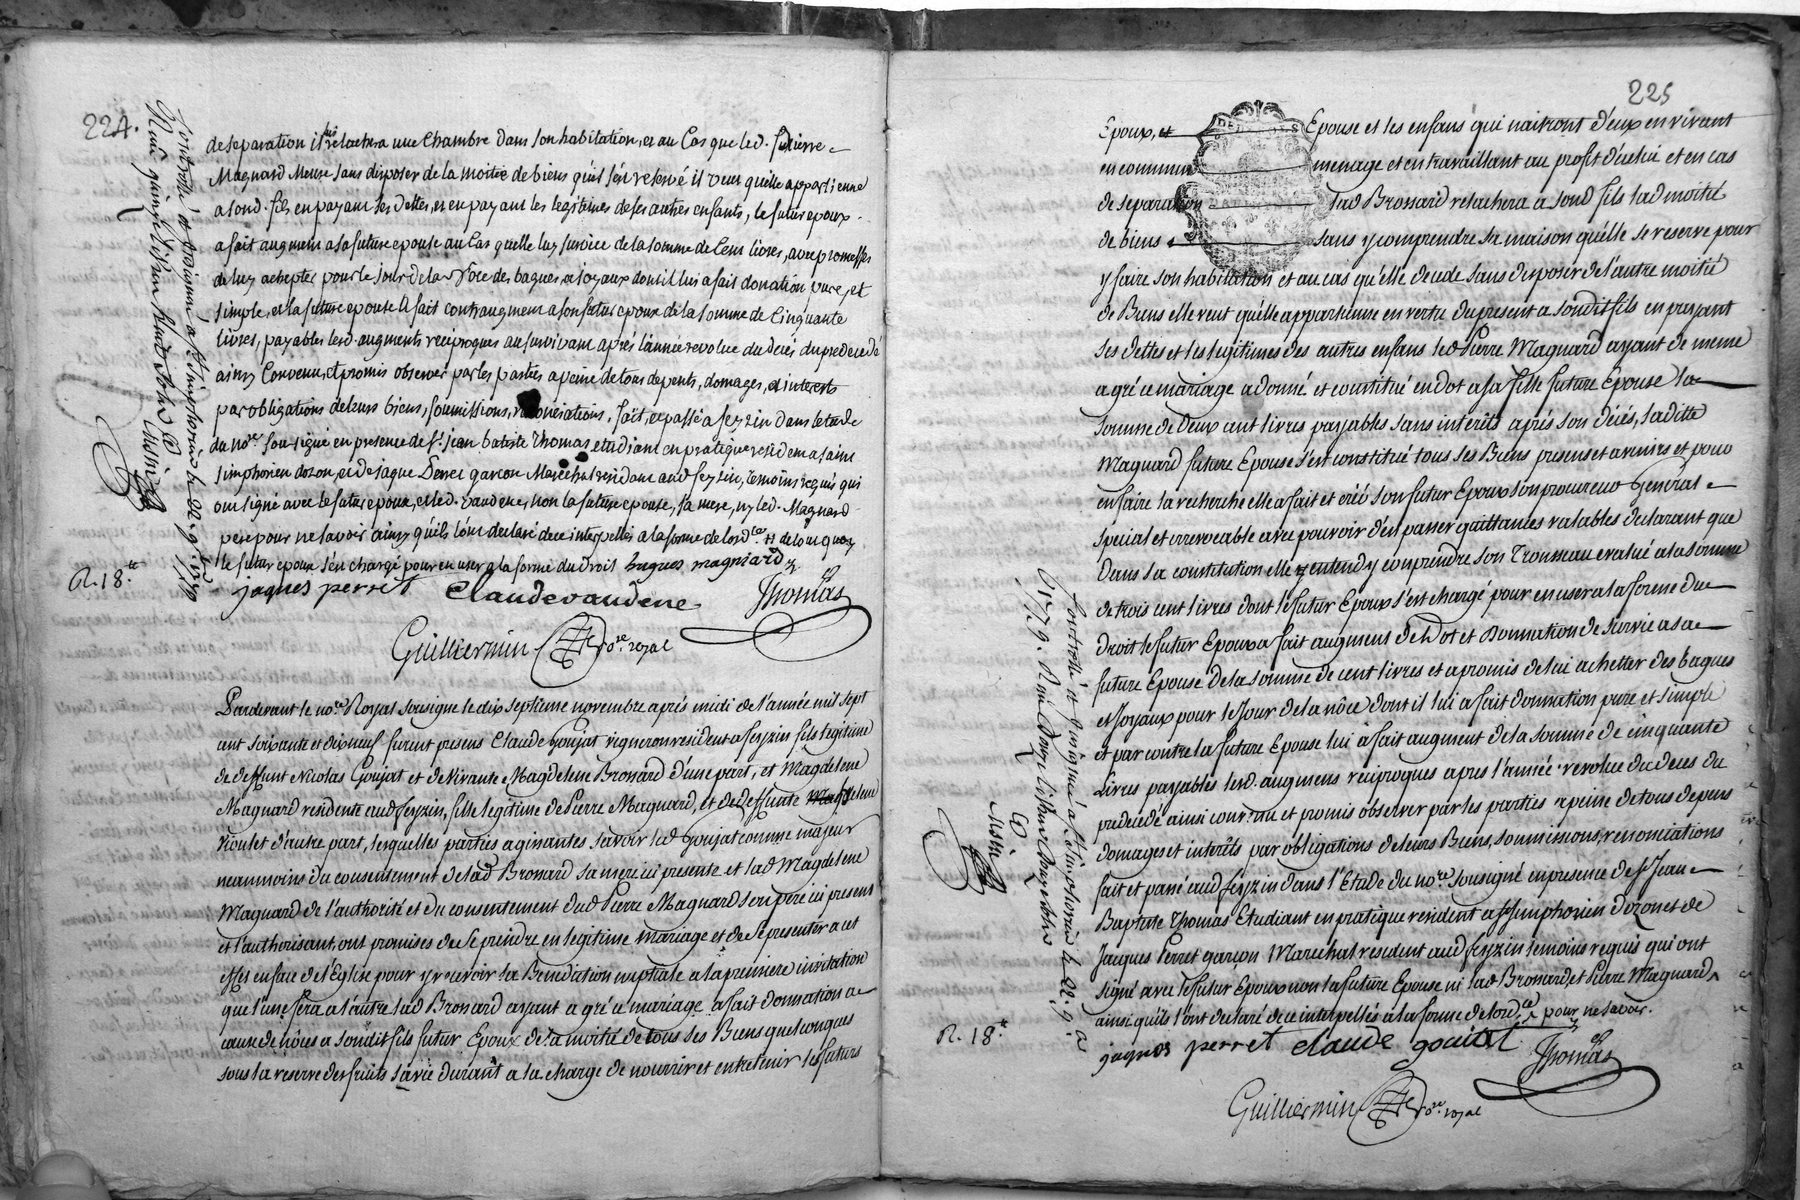 224.
de separation il luy relachera une Chambre dans son habitation, et au Cas que led. Sr pierre
Magnard Meure sans disposer de la moitié de biens qu'il s'en reservé il veut qu'elle appartienne
a sond. fils en payant ses dettes, et en payant les legitimes de ses autres enfants, le futur epoux
a fait augment a sa future epouse au Cas quelle luy survive de la somme de Cent livres, avec promesses
de luy achepter pour le jour de la Noce de bagues et joyaux dont il lui a fait donation pure, et
simple, et la future epouse a fait contraugment a son futur epoux de la somme de Cinquante
livres, payables lesd. augments reciproques au survivant aprés l'année revolue du decés du predecedé
ainsy Convenu, et promis observer par les parties a peine de tous depents, domages, et interets
par obligations de leurs biens, soumissions, renonciations, fait, et passé a feyzin dans letude
du nore sousigné en presence de Sr jean batiste Thomas etudiant en pratique resident a saint
simphorien dozon, et de jaque Perret garcon Marechal resident aud feyzin, temoins requis qui
ont signé avec le futur epoux, et led. vaudene, non la future epouse, sa mere, ny led. Magnard
pere pour ne savoir ainsy qu'ils l'ont declaré de ce interpellés a la forme de lordce # de lout quoy
le futur epoux s'en chargé pour en user a la forme du Droit hugues magniard
jaques perret claudevaudene Thomas
Guilliermin nore. royal
R. 18.s
Controllé et Insinué a St simphorien le 22. 9bre 1779
Reçu quinze livres
Pardevant le nore Royal sousigné le dix septieme novembre aprés midi de l'année mil sept
cent soixante et dix neuf furent presens Claude Goujat vigneron resident a feyzin fils legitime
de deffunt Nicolas Goujat et de vivante Magdelene Brossard d'une part, et Magdelene
Magnard residente aud feyzin, fille legitime de Pierre Magnard, et de deffunte Magdelene
Noulet d'autre part, lesquelles parties agissantes savoir led Goujat comme majeur
neanmoins du consentement de lad Brossard sa mere ici presente et lad Magdelene
Magnard de l'authorité et du consentement dud Pierre Magnard son pere ici present
et l'authorisant, ont promises de se prendre en legitime mariage et de se presenter a cet
effet en face de l'Eglise pour y recevoir la Benediction nuptiale a la premiere invitation
que l'une fera a l'autre lad Brossard ayant agréé ce mariage a fait donnation a
cause de nôces a sondit fils futur Epoux de la moitié de tous ses Biens quelconques
sous la reserve des fruits sa vie durant a la charge de nourrir et entretenir les futurs
225
Epoux, et Epouse et les enfans qui naitront d'eux en vivant
en commun menage et en travaillant au profit d'icelui et en cas
de separation lad Brossard relachera a sond fils lad moitié
de biens sans y comprendre sa maison qu'elle se reserve pour
y faire son habitation et au cas qu'elle decede sans disposer de l'autre moitié
de Biens elle veut qu'elle appartienne en vertu du present a sondit fils en payant
ses dettes et les legitimes des autres enfans led Pierre Magnard ayant de meme
agréé ce mariage a donné et constitué en dot a sa fille future Epouse la
somme de Deux cent livres payables sans interêts aprés son décés, ladite
Magnard future Epouse s'est constitué tous ses Biens presens et avenirs et pour
en faire la recherche elle a fait et créé son futur Epoux son procureur General
special et irrevocable avec pouvoir d'en passer quittances valables declarant que
Dans sa constitution elle y entend y comprendre son Trousseau evalué a la somme
de trois cent livres dont le futur Epoux s'est chargé pour en user a la forme du
Droit le futur Epoux a fait augment de dot et Donnation de survie a sa
future Epouse de la somme de cent livres et a promis de lui achetter des bagues
et Joyaux pour le Jour de la nôce dont il lui a fait donnation pure et simple
et par contre la future Epouse lui a fait augment de la somme de cinquante
Livres payables lesd. augmens reciproques apres l'année revolue du deces du
predecedé ainsi convenu et promis observer par les parties a peine de tous depens
domages et interêts par obligations de leurs Biens, soumissions, renonciations
fait et passé aud feyzin dans l'Etude du nore sousigné en presence de Sr Jean
Baptiste Thomas Etudiant en pratique resident a St simphorien dozon et de
Jacques Perret garçon Marechal resident aud feyzin temoins requis qui ont
signé avec le futur Epoux non la future Epouse ni lad Brossard, et Pierre Magnard
ainsi qu'ils l'ont declaré de ce interpellés a la forme de lordce pour ne savoir.
jaques perret claude goujat Thomas
Guilliermin nore. royal
R. 18.s
Controllé et Insinué a St simphorien le 22. 9.
1779. Reçu Douze livres